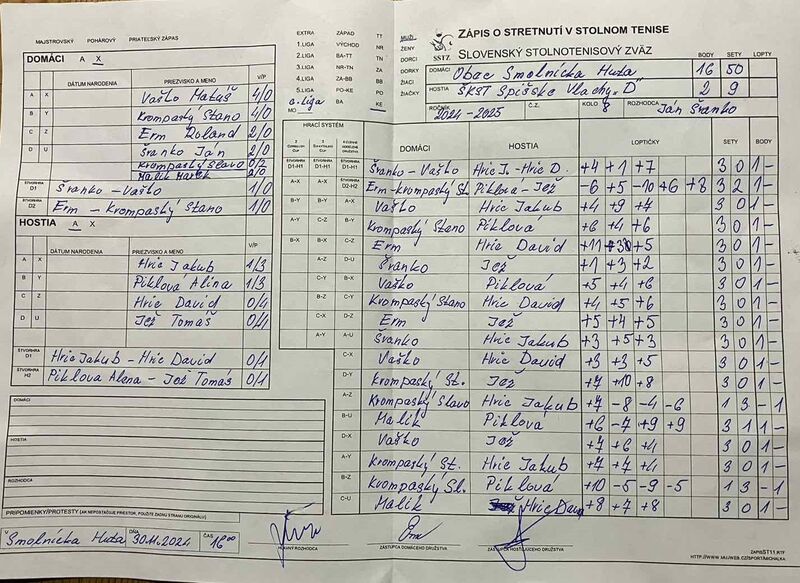 MAJSTROVSKÝ POHÁROVÝ PRIATEĽSKÝ ZÁPAS
DOMÁCI A X
DÁTUM NARODENIA PRIEZVISKO A MENO V/P
A X Vaško Matúš 4/0
B Y Krompaský Stano 4/0
C Z Erm Roland 2/0
D U Šranko Ján 2/0
Krompaský Slavo 0/2
Malik Marek 2/0
ŠTVORHRA D1 Šranko - Vaško 1/0
ŠTVORHRA D2 Erm - Krompaský Stano 1/0
HOSTIA A X
DÁTUM NARODENIA PRIEZVISKO A MENO V/P
A X Hric Jakub 1/3
B Y Piklová Alina 1/3
C Z Hric David 0/4
D U Jež Tomáš 0/4
ŠTVORHRA D1 Hric Jakub - Hric David 0/1
ŠTVORHRA H2 Piklova Alena - Jež Tomáš 0/1
DOMÁCI
HOSTIA
ROZHODCA
PRIPOMIENKY/PROTESTY (AK NEPOSTAČUJE PRIESTOR, POUŽITE ZADNÚ STRANU ORIGINÁLU)
V Smolnícka Huta DŇA 30.11.2024 ČAS 16 00
HLAVNÝ ROZHODCA
ZÁSTUPCA DOMÁCEHO DRUŽSTVA
ZÁSTUPCA HOSŤUJÚCEHO DRUŽSTVA
EXTRA ZÁPAD TT
1.LIGA VÝCHOD NR
2.LIGA BA-TT TN
3.LIGA NR-TN ZA
4.LIGA ZA-BB BB
5.LIGA PO-KE PO
6.liga BA KE
MO
MUŽI
ŽENY
DORCI
DORKY
ŽIACI
ŽIAČKY
SSTZ
ZÁPIS O STRETNUTÍ V STOLNOM TENISE
SLOVENSKÝ STOLNOTENISOVÝ ZVÄZ
BODY SETY LOPTY
DOMÁCI Obec Smolnícka Huta 16 50
HOSTIA ŠKST Spišské Vlachy "D" 2 9
ROČNÍK 2024-2025 Č.Z. KOLO 8 ROZHODCA Ján Šranko
HRACÍ SYSTÉM
DOMÁCI HOSTIA LOPTIČKY SETY BODY
D1-H1 D1-H1 D1-H1 Šranko - Vaško Hric J. - Hric D. +4 +1 +7 3 0 1 -
A-X A-X D2-H2 Erm - Krompaský St. Piklova - Jež -6 +5 -10 +6 +8 3 2 1 -
B-Y B-Y A-X Vaško Hric Jakub +4 +9 +7 3 0 1 -
A-Y C-Z B-Y Krompaský Stano Piklová +6 +4 +6 3 0 1 -
B-X B-X C-Z Erm Hric David +11 +5 3 0 1 -
A-Z D-U Šranko Jež +1 +3 +2 3 0 1 -
C-Y B-X Vaško Piklová +5 +4 +6 3 0 1 -
B-Z C-Y Krompaský Stano Hric David +4 +5 +6 3 0 1 -
C-X Erm Jež +5 +4 +5 3 0 1 -
A-Y Šranko Hric Jakub +3 +5 +3 3 0 1 -
C-X Vaško Hric David +3 +3 +5 3 0 1 -
D-Y Krompaský St. Jež +7 +10 +8 3 0 1 -
A-Z Krompaský Slavo Hric Jakub +7 -8 -4 -6 1 3 - 1
B-U Malík Piklová +6 -7 +9 +9 3 1 1 -
D-X Vaško Jež +7 +6 +4 3 0 1 -
A-Y Krompaský St. Hric Jakub +7 +7 +4 3 0 1 -
B-Z Krompaský Sl. Piklová +10 -5 -9 -5 1 3 - 1
C-U Malík Hric Dav +8 +7 +8 3 0 1 -
ZAPISST11.RTF
HTTP://WWW.MUJWEB.CZ/SPORT/MICHALKA